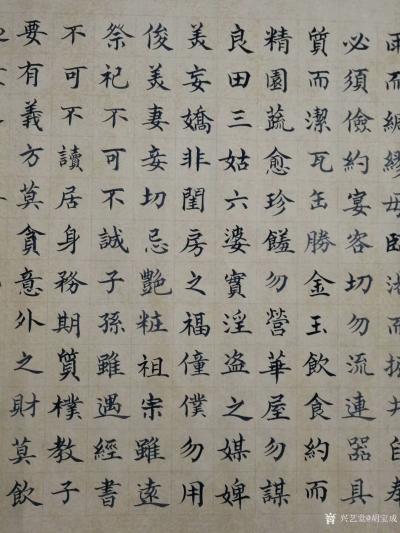 雨而綢繆毋臨渴而掘井自奉
必須儉約宴客切勿流連器具
質而潔瓦缶勝金玉飲食約而
精園蔬愈珍饈勿營華屋勿謀
良田三姑六婆實淫盗之媒婢
美妾嬌非閨房之福僮僕勿用
俊美妻妾切忌艷粧祖宗雖遠
祭祀不可不誠子孫雖遇經書
不可不讀居身務期質樸教子
要有義方莫貪意外之財莫飲
兴艺堂@胡宝成